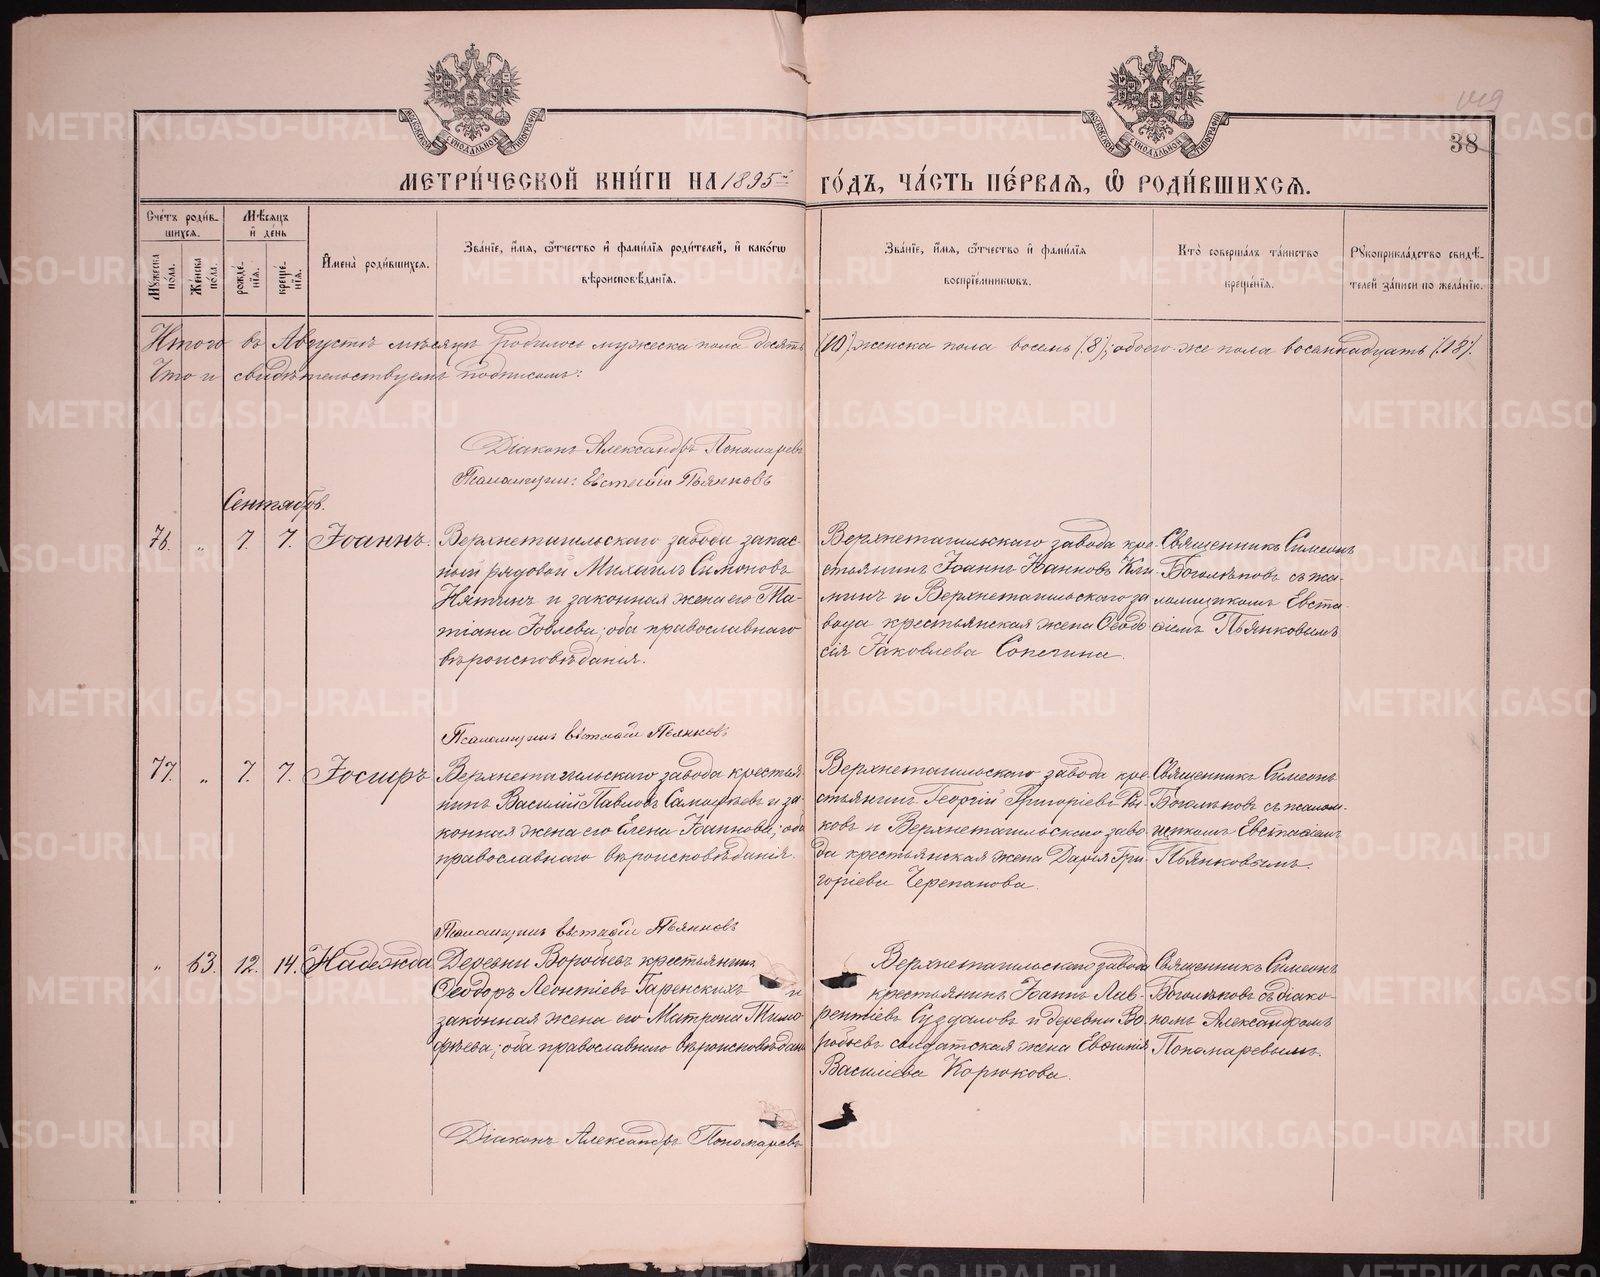 38
МЕТРИЧЕСКОЙ КНИГИ НА 1895 ГОДЪ, ЧАСТЬ ПЕРВАЯ, Ѿ РОДИВШИХСЯ.
Счетъ родившихся.
Мужеска пола.
Женска пола.
Мѣсяцъ и день
рожденія.
крещенія.
Имена родившихся.
Званіе, имя, отчество и фамилія родителей, и какогѡ вѣроисповѣданія.
Званіе, имя, отчество и фамилія воспріемниковъ.
Кто совершалъ таинство крещенія.
Рукоприкладство свидѣтелей записи по желанію.
Итого въ Августѣ мѣсяцѣ родилось мужеска пола десять (10), женска пола восемь (8), обоего же пола восемнадцать (18).
Что и свидѣтельствуемъ подписомъ:
Діаконъ Александръ Пономаревъ
Псаломщикъ Евстафій Пьянковъ
Сентябрь.
76. „ 7. 7. Іоаннъ.
Верхнетагильскаго завода запас-
ный рядовой Михаилъ Симоновъ
и законная жена его Та-
тіана Іовлева; оба православнаго
вѣроисповѣданія.
Верхнетагильскаго завода кре-
стьянинъ Іоаннъ Іоанновъ
и Верхнетагильскаго за
вода крестьянская жена Ѳеодо
сія Іаковлева Сопегина.
Священникъ Симеонъ
Боголѣповъ съ пса-
ломщикомъ Евста-
фіемъ Пьянковымъ
Псаломщикъ Евстафій Пьянковъ
77. „ 7. 7. Іосифъ
Верхнетагильскаго завода крестья
нинъ Василій Павловъ и за
конная жена его Елена Іоаннова; оба
православнаго вѣроисповѣданія.
Верхнетагильскаго завода кре-
стьянинъ Георгій Григоріевъ Ры-
ковъ и Верхнетагильскаго заво-
да крестьянская жена Дарія Гри-
горіева Черепанова.
Священникъ Симеонъ
Боголѣповъ съ псалом-
щикомъ Евстафіемъ
Пьянковымъ.
Псаломщикъ Евстафій Пьянковъ
„ 63. 12. 14. Надежда
Деревни Воробьевъ крестьянинъ
Ѳеодоръ Леонтіевъ Гаренскихъ и
законная жена его Матрона Тимо
фѣева; оба православнаго вѣроисповѣдан
Верхнетагильскаго завода
крестьянинъ Іоаннъ Лав-
рентіевъ Суздаловъ и деревни Во-
робьевъ солдатская жена Евѳимія
Василіева Корюкова.
Священникъ Симеонъ
Боголѣповъ съ діако-
номъ Александромъ
Пономаревымъ.
Діаконъ Александръ Пономаревъ
METRIKI.GASO-URAL.RU